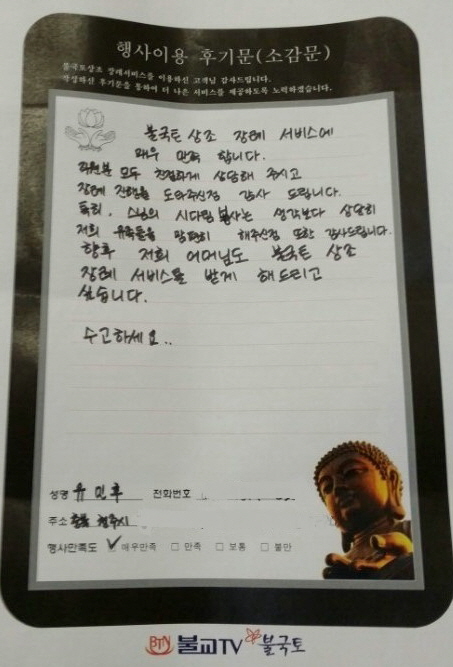 행사이용 후기문(소감문)
불국토상조 장례서비스를 이용하신 고객님 감사드립니다.
작성하신 후기문을 통하여 더 나은 서비스를 제공하도록 노력하겠습니다.
불국토 상조 장례 서비스에
매우 만족 합니다.
직원분 모두 친절하게 상담해 주시고
장례 진행을 도와주신점 감사 드립니다.
특히, 스님의 시다림 봉사는 생각보다 상당히
저희 유족들을 맘편히 해주신점 또한 감사드립니다.
향후 저희 어머님도 불국토 상조
장례 서비스를 받게 해드리고
싶습니다.
수고하세요..
성명 유민후 전화번호
주소 충북 청주시
행사만족도 ✓ 매우만족 □ 만족 □ 보통 □ 불만
BTN 불교TV 불국토